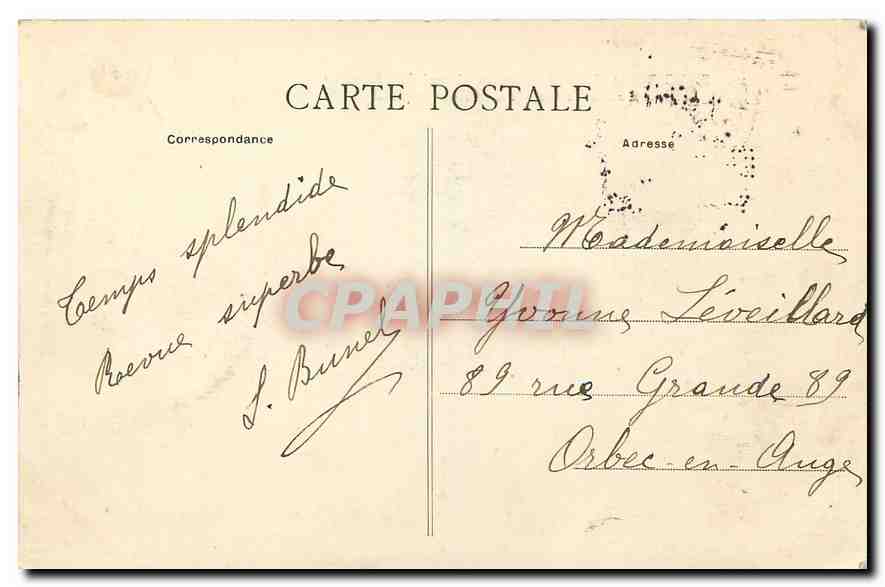 CARTE POSTALE
Correspondance
Temps splendide
Revue superbe
S. Bunel
Adresse
Mademoiselle
Yvonne Léveillard
89 rue Grande 89
Orbec-en-Auge
CPAPHIL